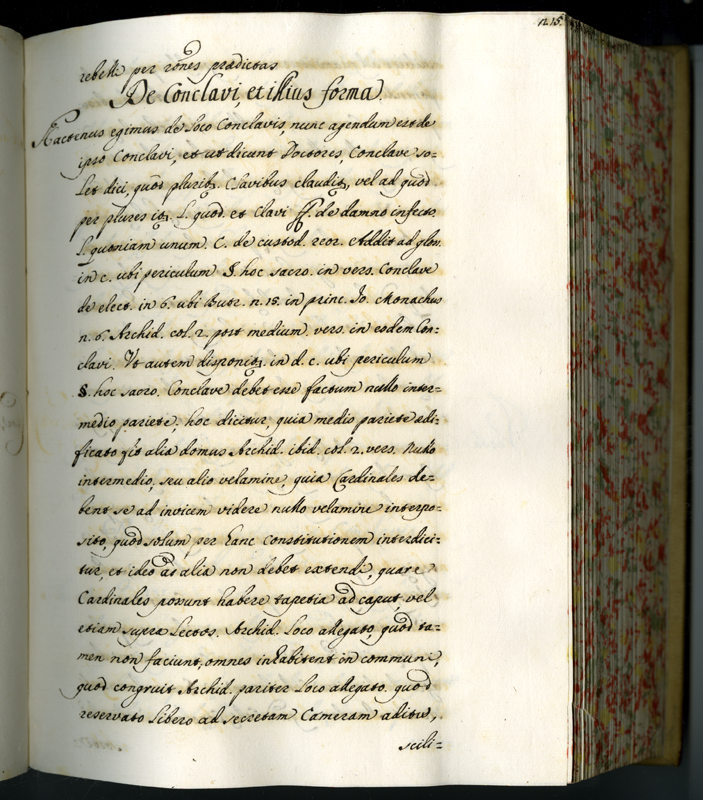 n. 15.
rebelle per rões prædictas
De Conclavi, et illius forma
Hactenus egimus de Loco Conclavis, nunc agendum est de
ipso Conclavi, et ut dicunt Doctores, Conclave so=
let dici, quod plurib9. Clavibus claudit9, vel ad quod
per plures it9. L. quod. et Clavi ff. de damno infect.
L. quoniam unum. C. de custod. reor. Addit ad glos.
in c. ubi periculum §. hoc sacro. in vers. Conclave
de elect. in 6. ubi Butr. n. 15. in princ. Io. Monachus
n. 6. Archid. col. 2. post medium. vers. in eodem Con=
clavi. Ut autem disponit9. in d. c. ubi periculum
§. hoc sacro. Conclave debet esse factum nullo inter=
medio pariete, hoc dicitur, quia medio pariete ædi=
ficato fit alia domus Archid. ibid. col. 2. vers. Nullo
intermedio, seu alio velamine, quia Cardinales de=
bent se ad invicem videre nullo velamine interpo=
sito, quod solum, per hanc constitutionem interdici=
tur, et ideo ad alia non debet extendi, quare
Cardinales possunt habere tapetia ad caput, vel
etiam supra Lectos. Archid. Loco allegato, quod ta=
men non faciunt, omnes inhabitent in communi,
quod congruit Archid. pariter Loco allegato. quod
reservato libero ad secretam Cameram aditu,
scili=